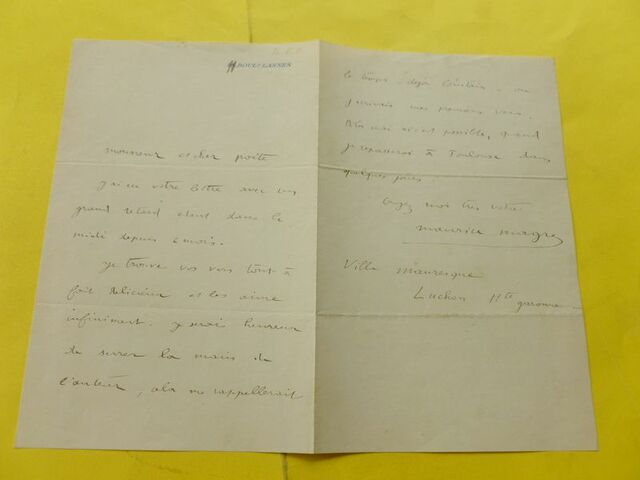 BOUL.D LANNES
monsieur et cher poète
j'ai eu votre lettre avec un
grand retard étant dans le
midi depuis 2 mois.
je trouve vos vers tout à
fait délicieux et les aime
infiniment. je serais heureux
de serrer la main de
l'auteur, cela me rappellerait
le temps déjà lointain où
j'écrivais mes premiers vers.
si c'est possible, quand
je repasserai à Toulouse dans
quelques jours
croyez moi très vôtre
maurice magre
Villa mauresque
Luchon Hte garonne